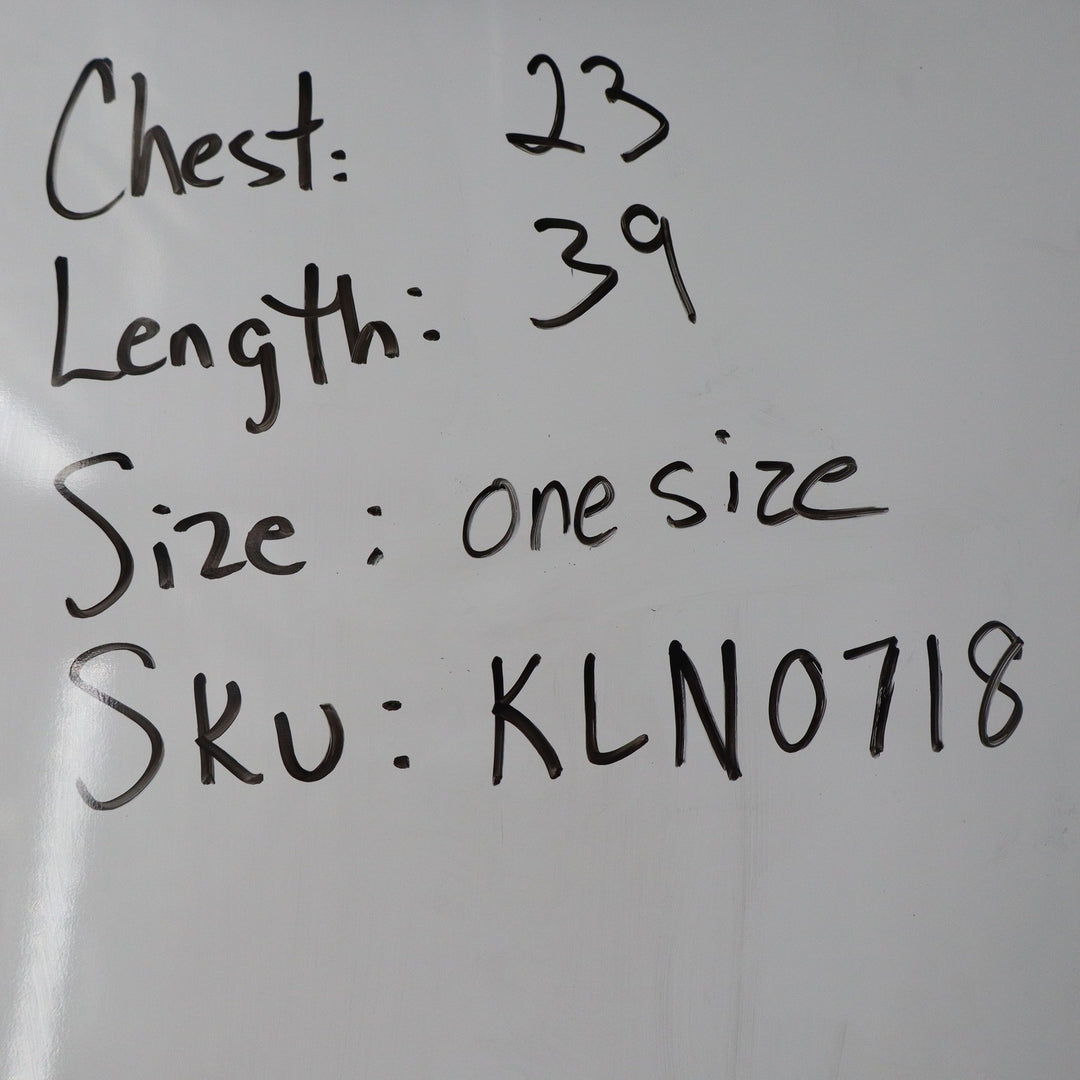 Chest: 23
Length: 39
Size: one size
Sku: KLN0718